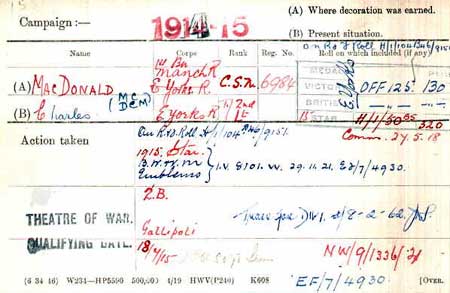 15
Campaign :—
1914-15
(A) Where decoration was earned.
(B) Present situation.
Name
Corps
Rank
Reg. No.
Roll on which included (if any)
1st Bn
Manch R
(A) MACDONALD
E York R.
C.S.M.
6984
MEDAL
VICTORY
OFF 125.
130
(M.C. DCM)
BRITISH
E. Yorks
(B) Charles.
E. Yorks R
2nd Lt
STAR
H/1/30
320
Comm. 27.5.18
Action taken
1915. Star.
Emblems
I.V. 8101. W. 29.11.21. EF/7/4930.
2.B.
THEATRE OF WAR.
Gallipoli
8-2-62
QUALIFYING DATE.
18/7/15
NW/9/1336/21
(6 34 46) W234—HP5590 500,000 4/19 HWV(P240) K608
EF/7/4930.
[OVER.